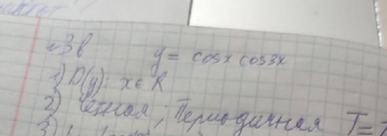 y = cosx cos3x
1) D(y): x ∈ R
2) Четная; Периодичная T=
3)